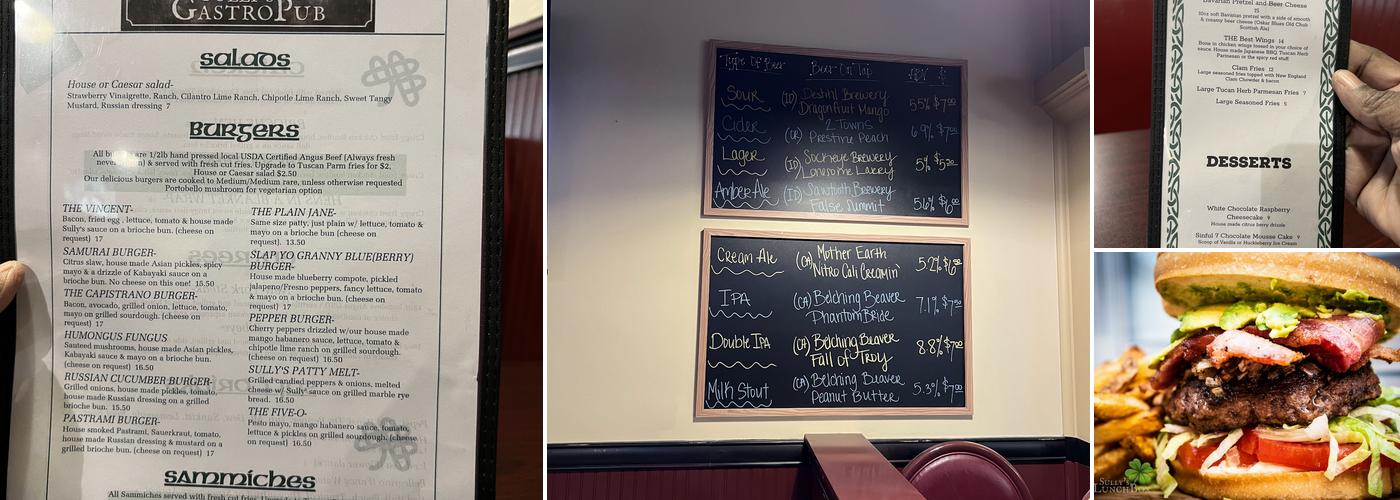 GASTROPUB
SALADS
House or Caesar salad-
Strawberry Vinaigrette, Ranch, Cilantro Lime Ranch, Chipotle Lime Ranch, Sweet Tangy
Mustard, Russian dressing 7
BURGERS
All are 1/2lb hand pressed local USDA Certified Angus Beef (Always fresh
& served with fresh cut fries. Upgrade to Tuscan Parm fries for $2,
House or Caesar salad $2.50
Our delicious burgers are cooked to Medium/Medium rare, unless otherwise requested
Portobello mushroom for vegetarian option
THE VINCENT-
Bacon, fried egg , lettuce, tomato & house made
Sully's sauce on a brioche bun. (cheese on
request) 17
SAMURAI BURGER-
Citrus slaw, house made Asian pickles, spicy
mayo & a drizzle of Kabayaki sauce on a
brioche bun. No cheese on this one! 15.50
THE CAPISTRANO BURGER-
Bacon, avocado, grilled onion, lettuce, tomato,
mayo on grilled sourdough. (cheese on
request) 17
HUMONGUS FUNGUS
Sauteed mushrooms, house made Asian pickles,
Kabayaki sauce & mayo on a brioche bun.
(cheese on request) 16.50
RUSSIAN CUCUMBER BURGER-
Grilled onions, house made pickles, tomato,
house made Russian dressing on a grilled
brioche bun. 15.50
PASTRAMI BURGER-
House smoked Pastrami, Sauerkraut, tomato,
house made Russian dressing & mustard on a
grilled brioche bun. (cheese on request) 17
THE PLAIN JANE-
Same size patty, just plain w/ lettuce, tomato &
mayo on a brioche bun (cheese on
request). 13.50
SLAP YO GRANNY BLUE(BERRY)
BURGER-
House made blueberry compote, pickled
jalapeño/Fresno peppers, fancy lettuce, tomato
& mayo on a brioche bun. (cheese on
request) 17
PEPPER BURGER-
Cherry peppers drizzled w/our house made
mango habanero sauce, lettuce, tomato &
chipotle lime ranch on grilled sourdough.
(cheese on request) 16.50
SULLY'S PATTY MELT-
Grilled candied peppers & onions, melted
cheese w/ Sully' sauce on grilled marble rye
bread. 16.50
THE FIVE-O-
Pesto mayo, mango habanero sauce, tomato,
lettuce & pickles on grilled sourdough. (cheese
on request) 16.50
SAMMICHES
All Sammiches served with fresh cut fries.
Type Of Beer Beer On Tap ABV $
Sour (ID) Destihl Brewery Dragonfruit Mango 5.5% $7.00
Cider (OR) 2 Towns Prestine Peach 6.9% $7.00
Lager (ID) Sockeye Brewery Lonesome Larry 5% $5.50
Amber Ale (ID) Sawtooth Brewery False Summit 5.6% $6.00
Cream Ale (CA) Mother Earth Nitro Cali Creamin' 5.2% $6.00
IPA (CA) Belching Beaver Phantom Bride 7.1% $7.00
Double IPA (CA) Belching Beaver Fall of Troy 8.8% $7.00
Milk Stout (CA) Belching Beaver Peanut Butter 5.3% $7.00
Bavarian Pretzel and Beer Cheese
15
10oz soft Bavarian pretzel with a side of smooth
& creamy beer cheese (Oskar Blues Old Chub
Scottish Ale)
THE Best Wings 14
Bone in chicken wings tossed in your choice of
sauce. House made Japanese BBQ, Tuscan Herb
Parmesan or the spicy red stuff
Clam Fries 12
Large seasoned fries topped with New England
Clam Chowder & bacon
Large Tucan Herb Parmesan Fries 7
Large Seasoned Fries 5
DESSERTS
White Chocolate Raspberry
Cheesecake 9
House made citrus berry drizzle
Sinful 7 Chocolate Mousse Cake 9
Scoop of Vanilla or Huckleberry Ice Cream
SULLY'S
LUNCHBOX